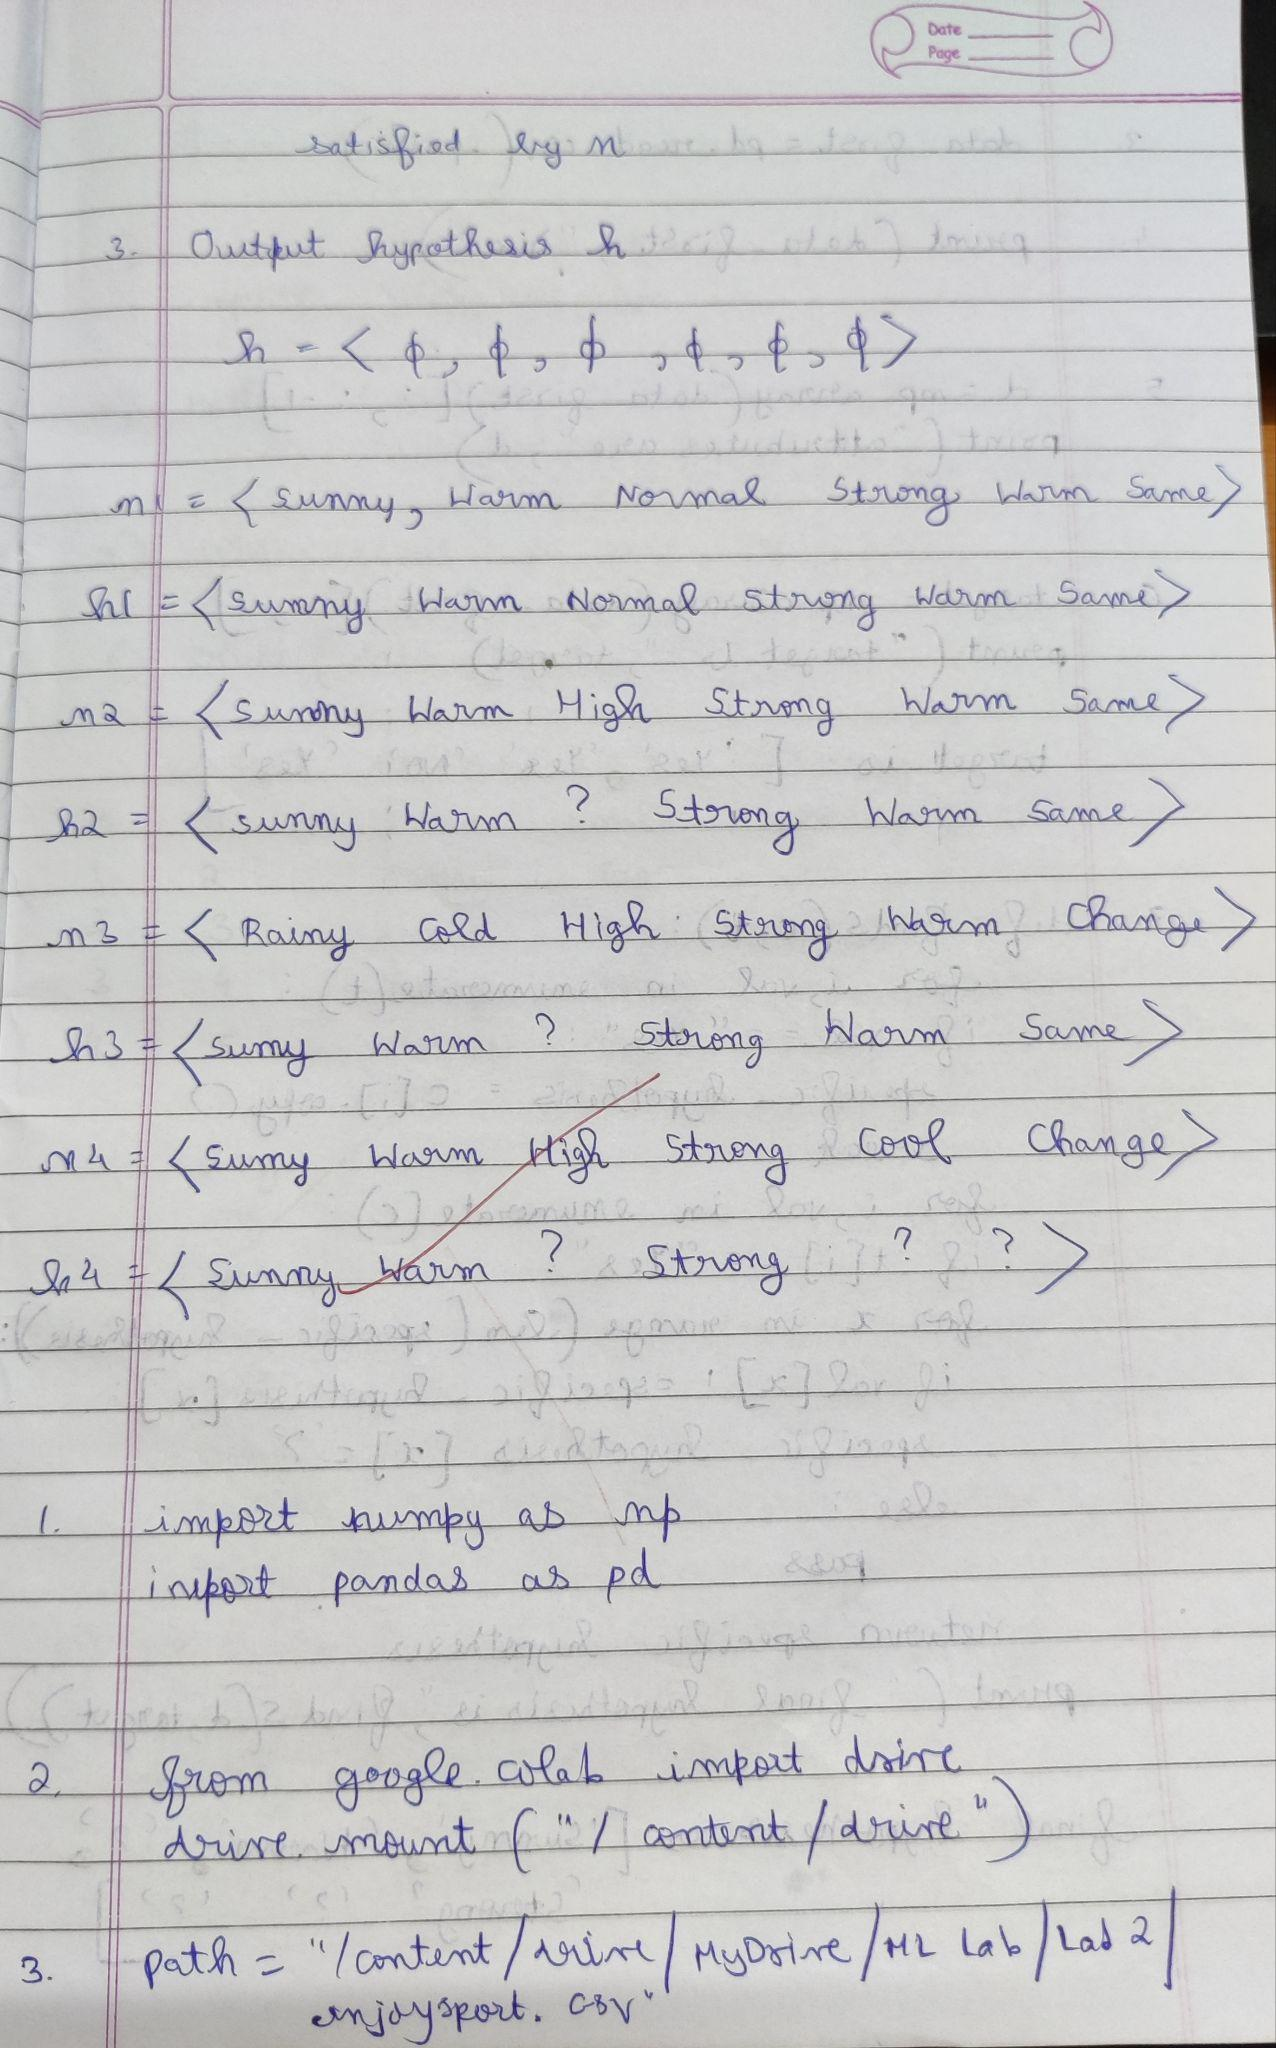 Date
Page
satisfied by x
3. Output hypothesis h
h = < ϕ, ϕ, ϕ, ϕ, ϕ, ϕ>
x1 = < Sunny, Warm Normal Strong Warm Same>
h1 = < Sunny Warm Normal Strong Warm Same>
x2 = < Sunny Warm High Strong Warm Same>
h2 = < Sunny Warm ? Strong Warm Same>
x3 = < Rainy Cold High Strong Warm Change>
h3 = < Sunny Warm ? Strong Warm Same>
x4 = < Sunny Warm High Strong Cool Change>
h4 = < Sunny Warm ? Strong ? ? >
1. import numpy as np
import pandas as pd
2. from google.colab import drive
drive.mount ("/content/drive")
3. path = "/content/drive/MyDrive/ML Lab/Lab 2/
enjoysport.csv"